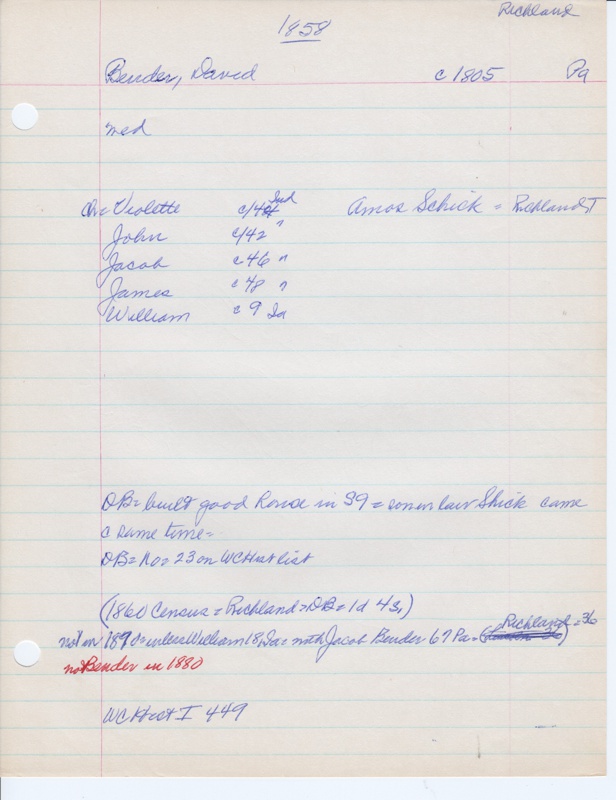 Richland
1858
Bender, David c 1805 Pa
med
ch = Violette c/40 Ind Amos Schick = Richland T
John c/42 "
Jacob c 46 "
James c 48 "
William c 9 Ia
DB = built good house in S9 = son in law Shick came
c same time =
DB = No = 23 on WC Hist list
(1860 Census = Richland = DB = 1d 43,)
not on 1870 = unless William 18 Ia = with Jacob Bender 67 Pa = Richland = 36
no Bender in 1880
WC Hist I 449